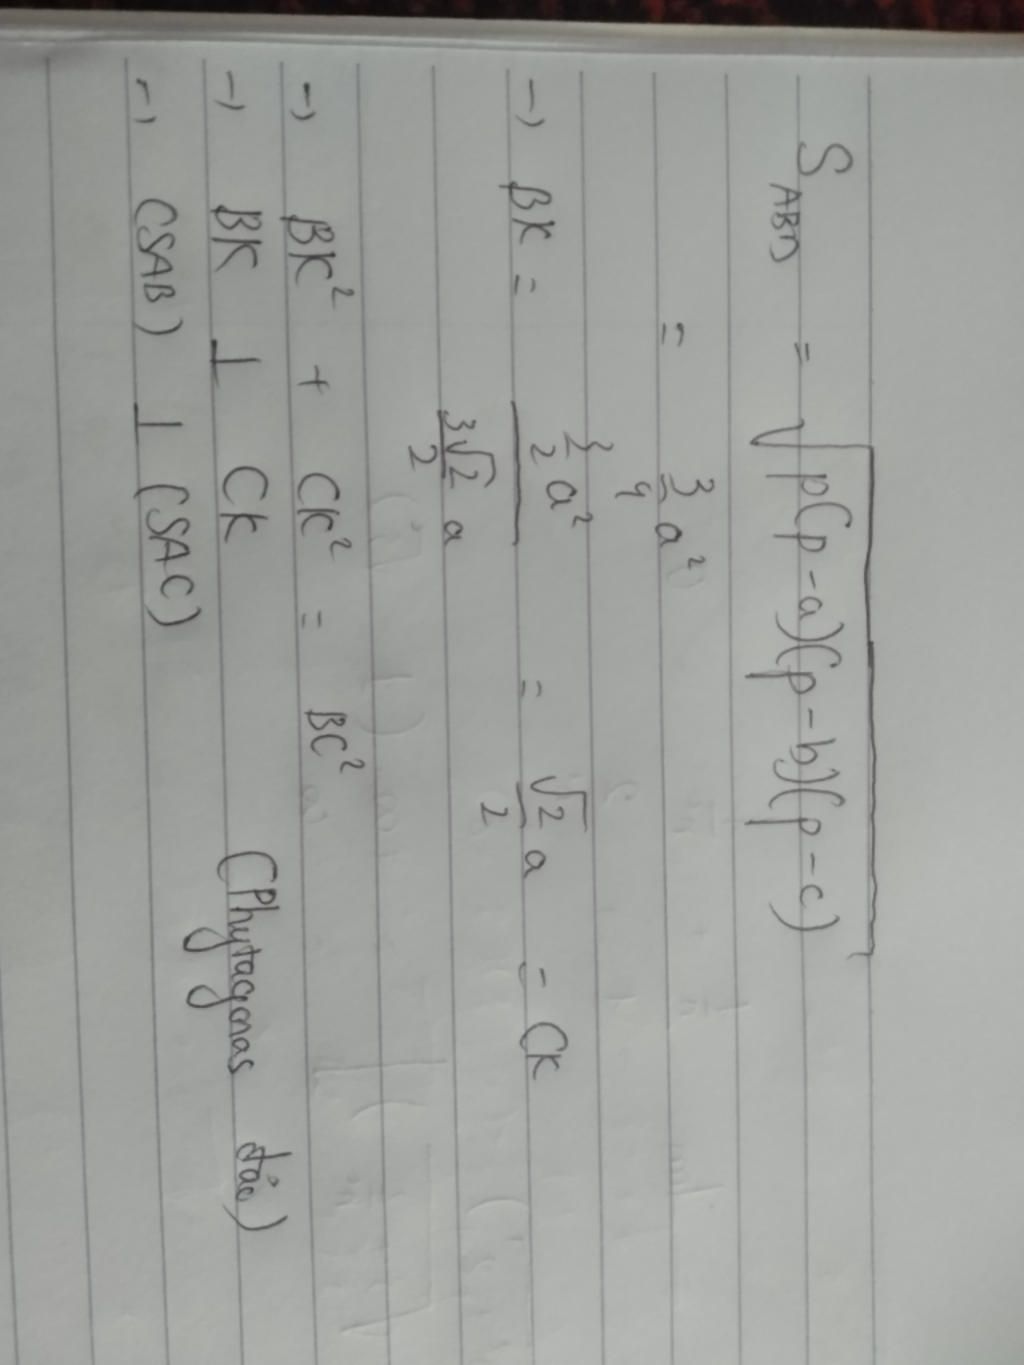 S_ABD = √(p(p-a)(p-b)(p-c))
= 3/4 a²
→ BK = (3/2 a²)/(3√2/2 a) = √2/2 a = CK
→ BK² + CK² = BC²
→ BK ⊥ CK (Phytagoras đảo)
→ (SAB) ⊥ (SAC)